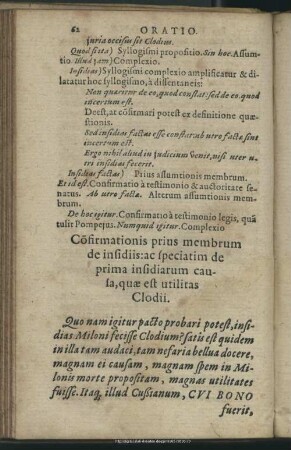 62 ORATIO.
juria occisus sit Clodius.
Quod si eta) Syllogismi propositio. Sin hoc. Assum-
tio. Illud jam) Complexio.
Insidias) Syllogismi complexio amplificatur & di-
latatur hoc syllogismo, à dissentaneis:
Non quæritur de eo, quod constat: sed de eo, quod
incertum est.
Deest, at cōsirmari potest ex definitione quæ-
stionis.
Sed insidias factas esse constat: ab utro factæ sint
incertum est.
Ergo nihil aliud in judicium venit, nisi uter u-
tri insidias fecerit.
Insidias factas) Prius assumtionis membrum.
Et id est. Confirmatio à testimonio & auctoritate se-
natus. Ab utro facta. Alterum assumtionis mem-
brum.
De hoc igitur. Confirmatio à testimonio legis, quā
tulit Pompejus. Numquid igitur. Complexio
Cōfirmationis prius membrum
de insidiis: ac speciatim de
prima insidiarum cau-
sa, quæ est utilitas
Clodii.
Quo nam igitur pacto probari potest, insi-
dias Miloni fecisse Clodium? satis est quidem
in illa tam audaci, tam nefaria bellua docere,
magnam ei causam, magnam spem in Mi-
lonis morte propositam, magnas utilitates
fuisse. Itaq; illud Cassianum, CVI BONO
fuerit,